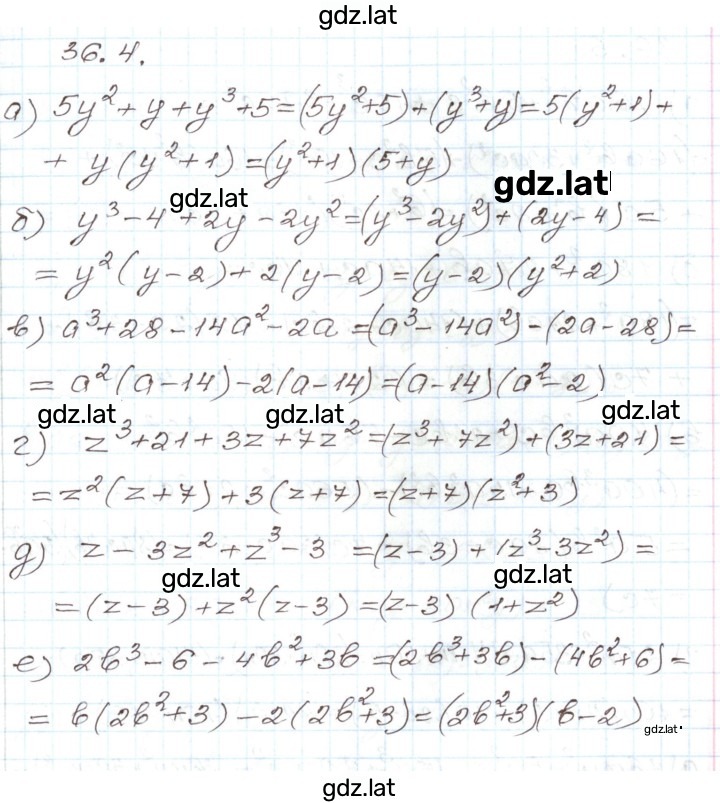 gdz.lat
36.4.
а) 5y²+y+y³+5=(5y²+5)+(y³+y)=5(y²+1)+
+ y(y²+1)=(y²+1)(5+y)
gdz.lat
gdz.lat
б) y³-4+2y-2y²=(y³-2y²)+(2y-4)=
= y²(y-2)+2(y-2)=(y-2)(y²+2)
в) a³+28-14a²-2a=(a³-14a²)-(2a-28)=
= a²(a-14)-2(a-14)=(a-14)(a²-2)
gdz.lat
gdz.lat
gdz.lat
г) z³+21+3z+7z²=(z³+7z²)+(3z+21)=
=z²(z+7)+3(z+7)=(z+7)(z²+3)
д) z-3z²+z³-3=(z-3)+(z³-3z²)=
gdz.lat
gdz.lat
=(z-3)+z²(z-3)=(z-3)(1+z²)
е) 2b³-6-4b²+3b=(2b³+3b)-(4b²+6)=
= b(2b²+3)-2(2b²+3)=(2b²+3)(b-2).
gdz.lat
gdz.lat